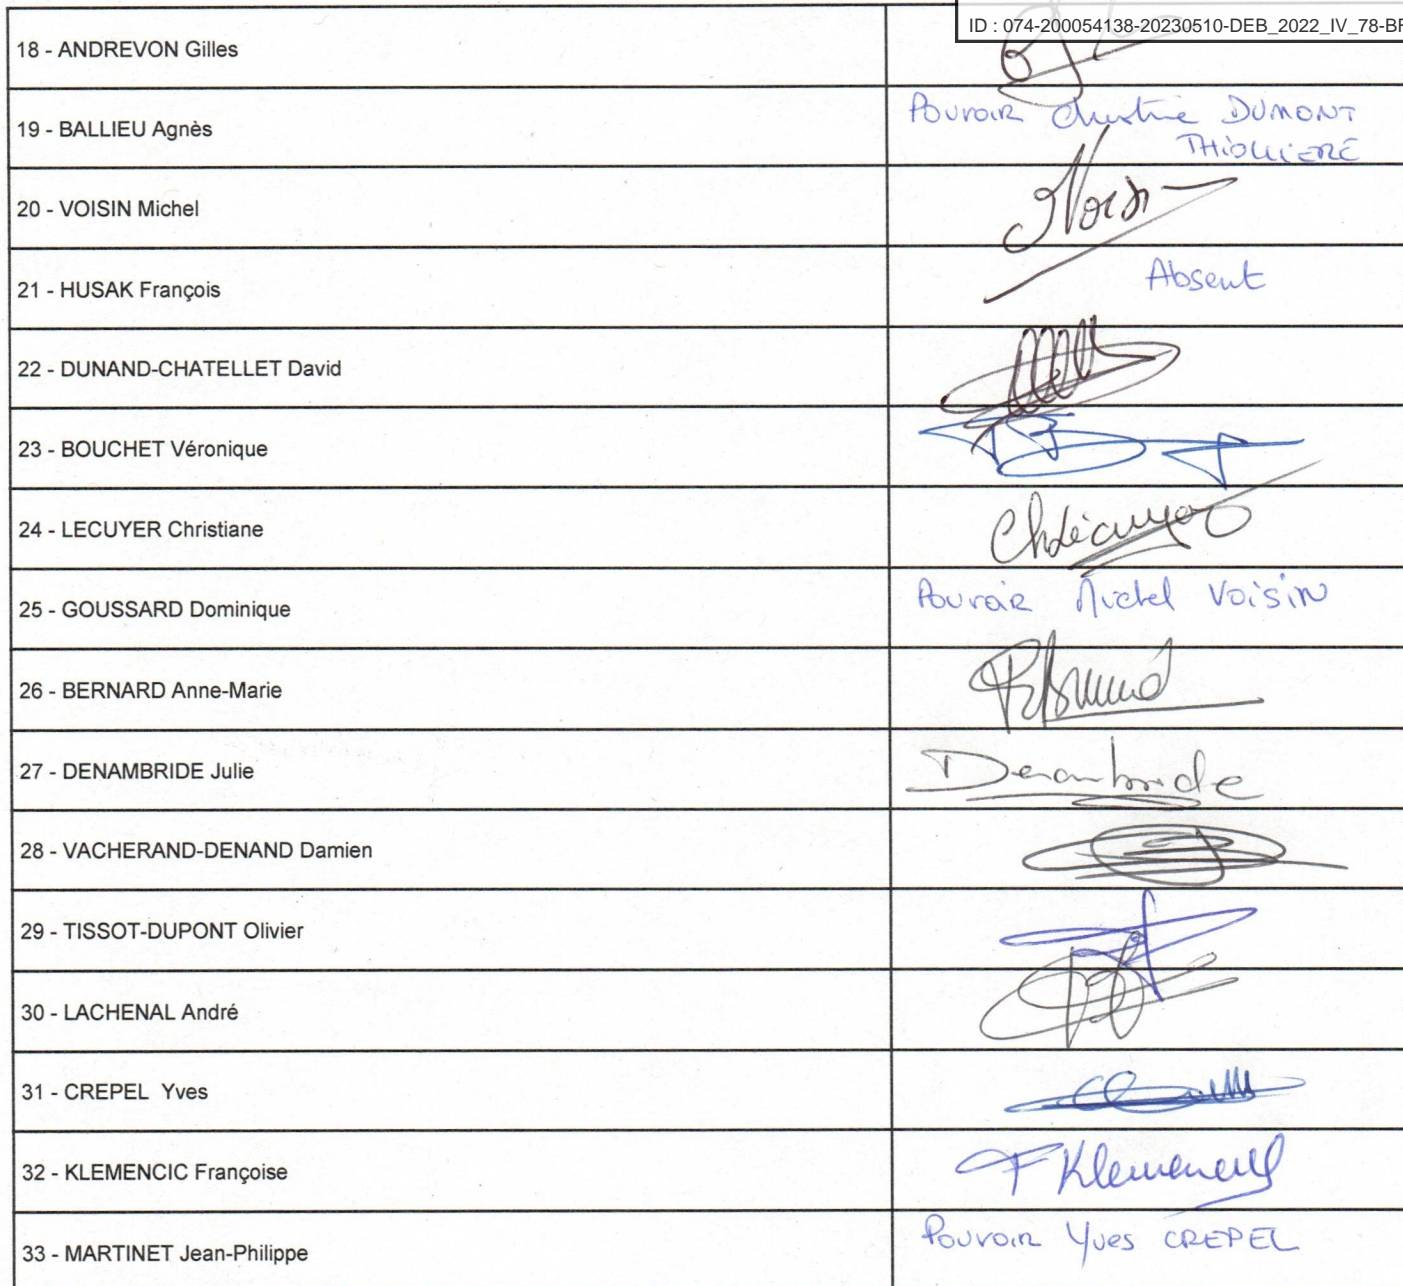 ID : 074-200054138-20230510-DEB_2022_IV_78-BF
18 - ANDREVON Gilles
19 - BALLIEU Agnès
Pouvoir Christine DUMONT
THIOLLIERE
20 - VOISIN Michel
Voisin
21 - HUSAK François
Absent
22 - DUNAND-CHATELLET David
23 - BOUCHET Véronique
24 - LECUYER Christiane
ChLécuyer
25 - GOUSSARD Dominique
Pouvoir Michel VOISIN
26 - BERNARD Anne-Marie
27 - DENAMBRIDE Julie
Denambride
28 - VACHERAND-DENAND Damien
29 - TISSOT-DUPONT Olivier
30 - LACHENAL André
31 - CREPEL Yves
32 - KLEMENCIC Françoise
F Klemencic
33 - MARTINET Jean-Philippe
Pouvoir Yves CREPEL